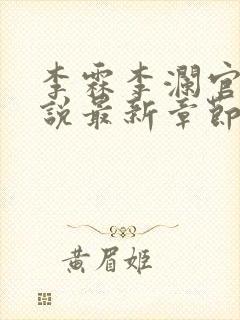 李霖李瀾官
說最新章節
黃眉姬